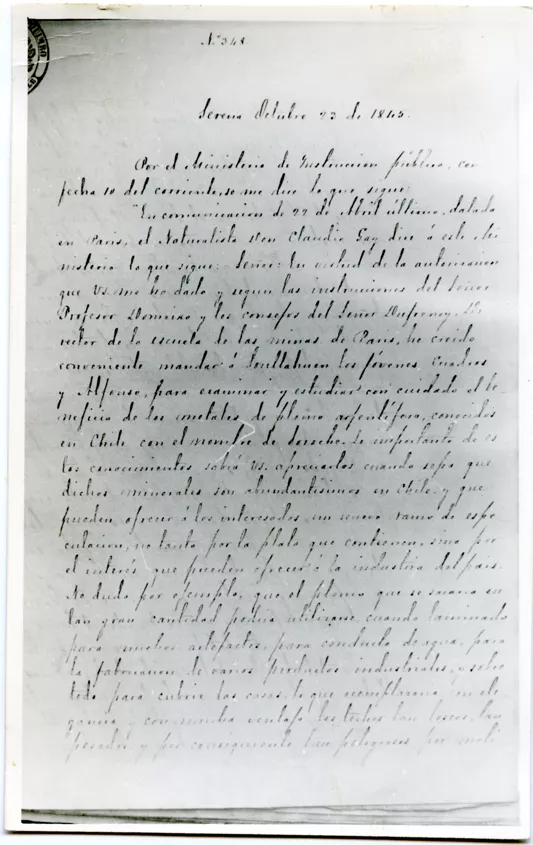 N.° 348
Serena Octubre 23 de 1845.
Por el Ministerio de Instruccion pública, con
fecha 10 del corriente, se me dice lo que sigue:
"En comunicacion de 22 de Abril último, datada
en Paris, el Naturalista Don Claudio Gay dice á este Mi
nisterio lo que sigue: Señor: En virtud de la autorizacion
que US. me ha dado y segun las instrucciones del Señor
Profesor Domeiko y los consejos del Señor Dufrenoy, Di
rector de la escuela de las minas de Paris, he creido
conveniente mandar á los jóvenes, Cuadros
y Alfonso, para examinar y estudiar con cuidado el be
neficio de los metales de plomo arjentífero, conocidos
en Chile con el nombre de Lo importante de es
tos conocimientos sabrá US. apreciarlos cuando sepa que
dichos minerales son abundantísimos en Chile y que
pueden ofrecer á los interesados un nuevo ramo de espe
culacion, no tanto por la plata que contienen, sino por
el interés que pueden ofrecer á la industria del pais.
No dudo por ejemplo, que el plomo que se sacaria en
tan gran cantidad podria utilizarse, cuando laminado
para muchos artefactos, para conducto de agua, para
la fabricacion de varios productos industriales, y sobre
todo para cubrir las casas, lo que reemplazaria con ele
gancia y con mucha ventaja los techos tan toscos, tan
pesados y por consiguiente tan peligrosos por